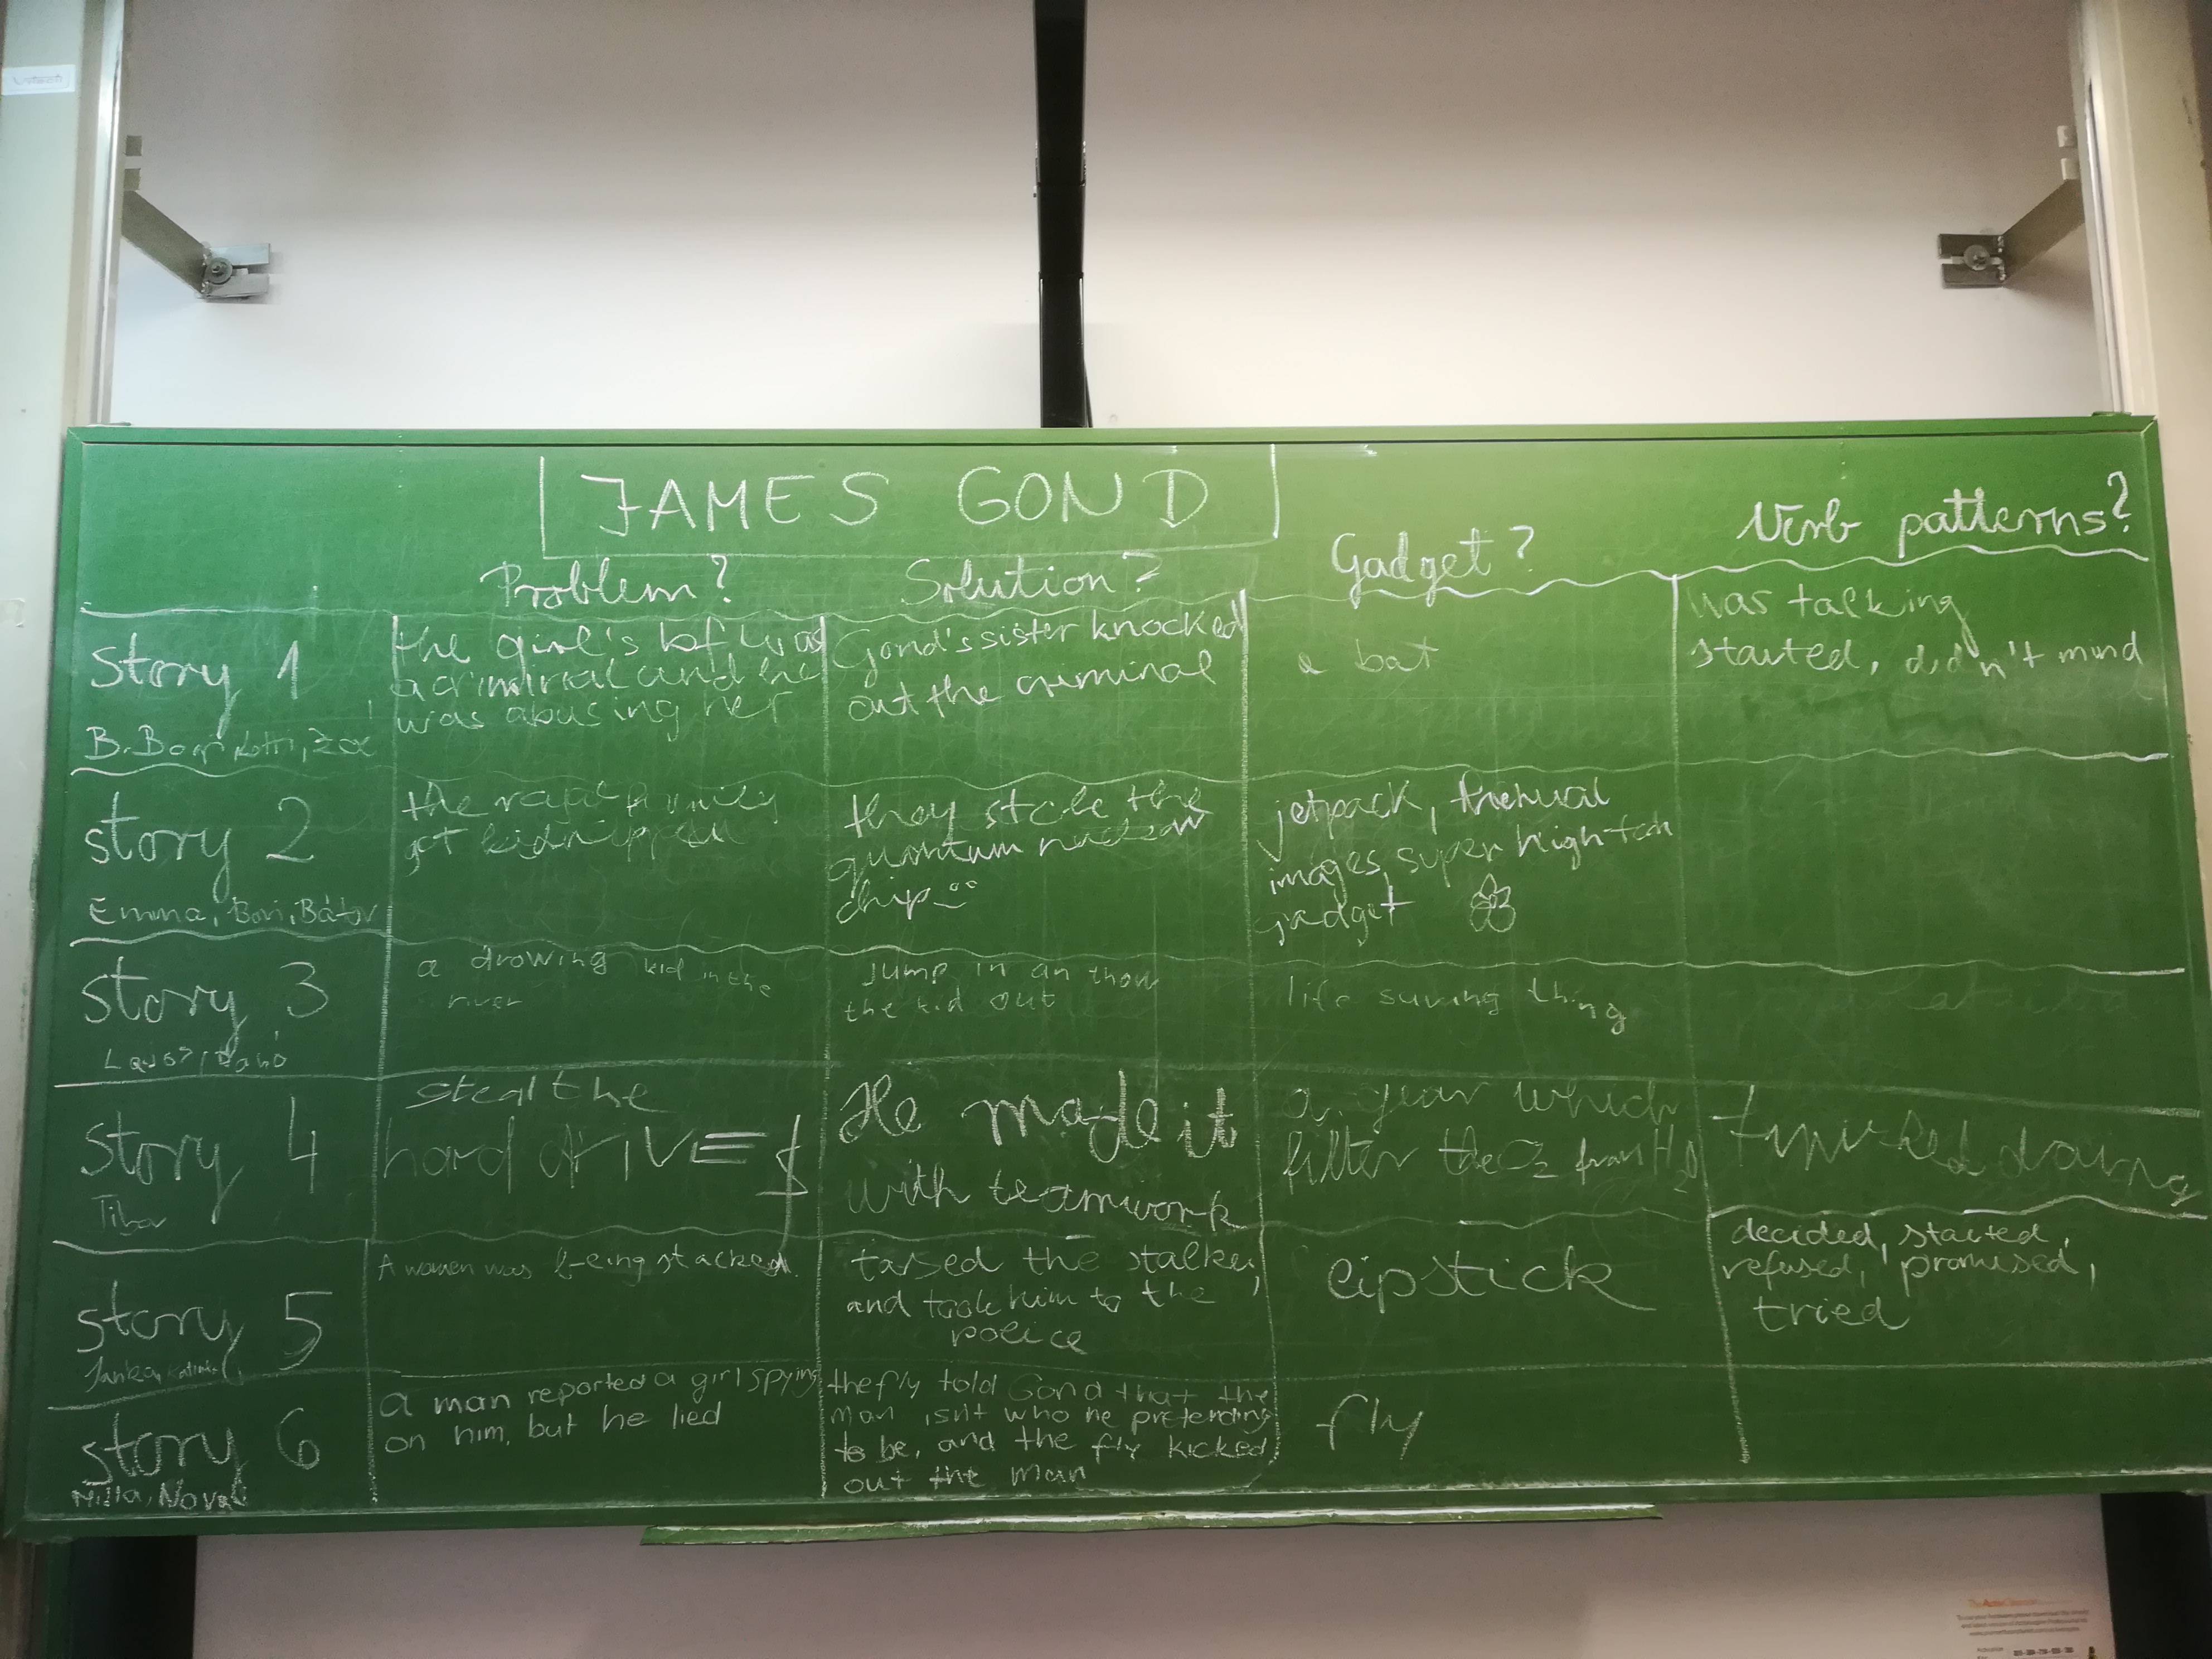 JAMES GOND
Problem?
Solution?
Gadget?
Verb patterns?
Story 1
the girl's bf was
a criminal and he
was abusing her
Gond's sister knocked
out the criminal
a bat
was talking
started, didn't mind
story 2
Emma, Bori, Bátor
the family
got
they stole the
quantum
chip
jetpack,
images, super high-tech
gadget
story 3
a drowing kid in the
river
Jump in an
the kid out
life thing
story 4
steal the
hard drIVE
He made it
with teamwork
a gear which
filter the O2 from H2O
doing
story 5
Janka,
A women was being stacked
tased the stalker,
and took him to the
police
lipstick
decided, started,
refused, promised,
tried
story 6
Milla,
a man reported a girl spying
on him, but he lied
the fly told Gond that the
man isn't who he pretending
to be, and the fly kicked
out the man
fly